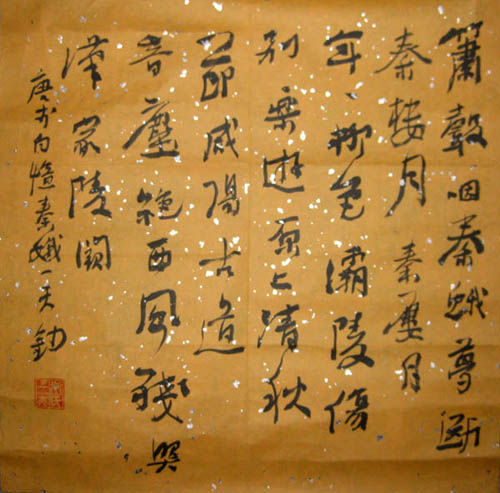 簫聲咽秦娥夢斷
秦樓月秦樓月
年々柳色灞陵傷
別樂遊原上清秋
節咸陽古道
音塵絕西風殘照
漢家陵闕
唐李白憶秦娥